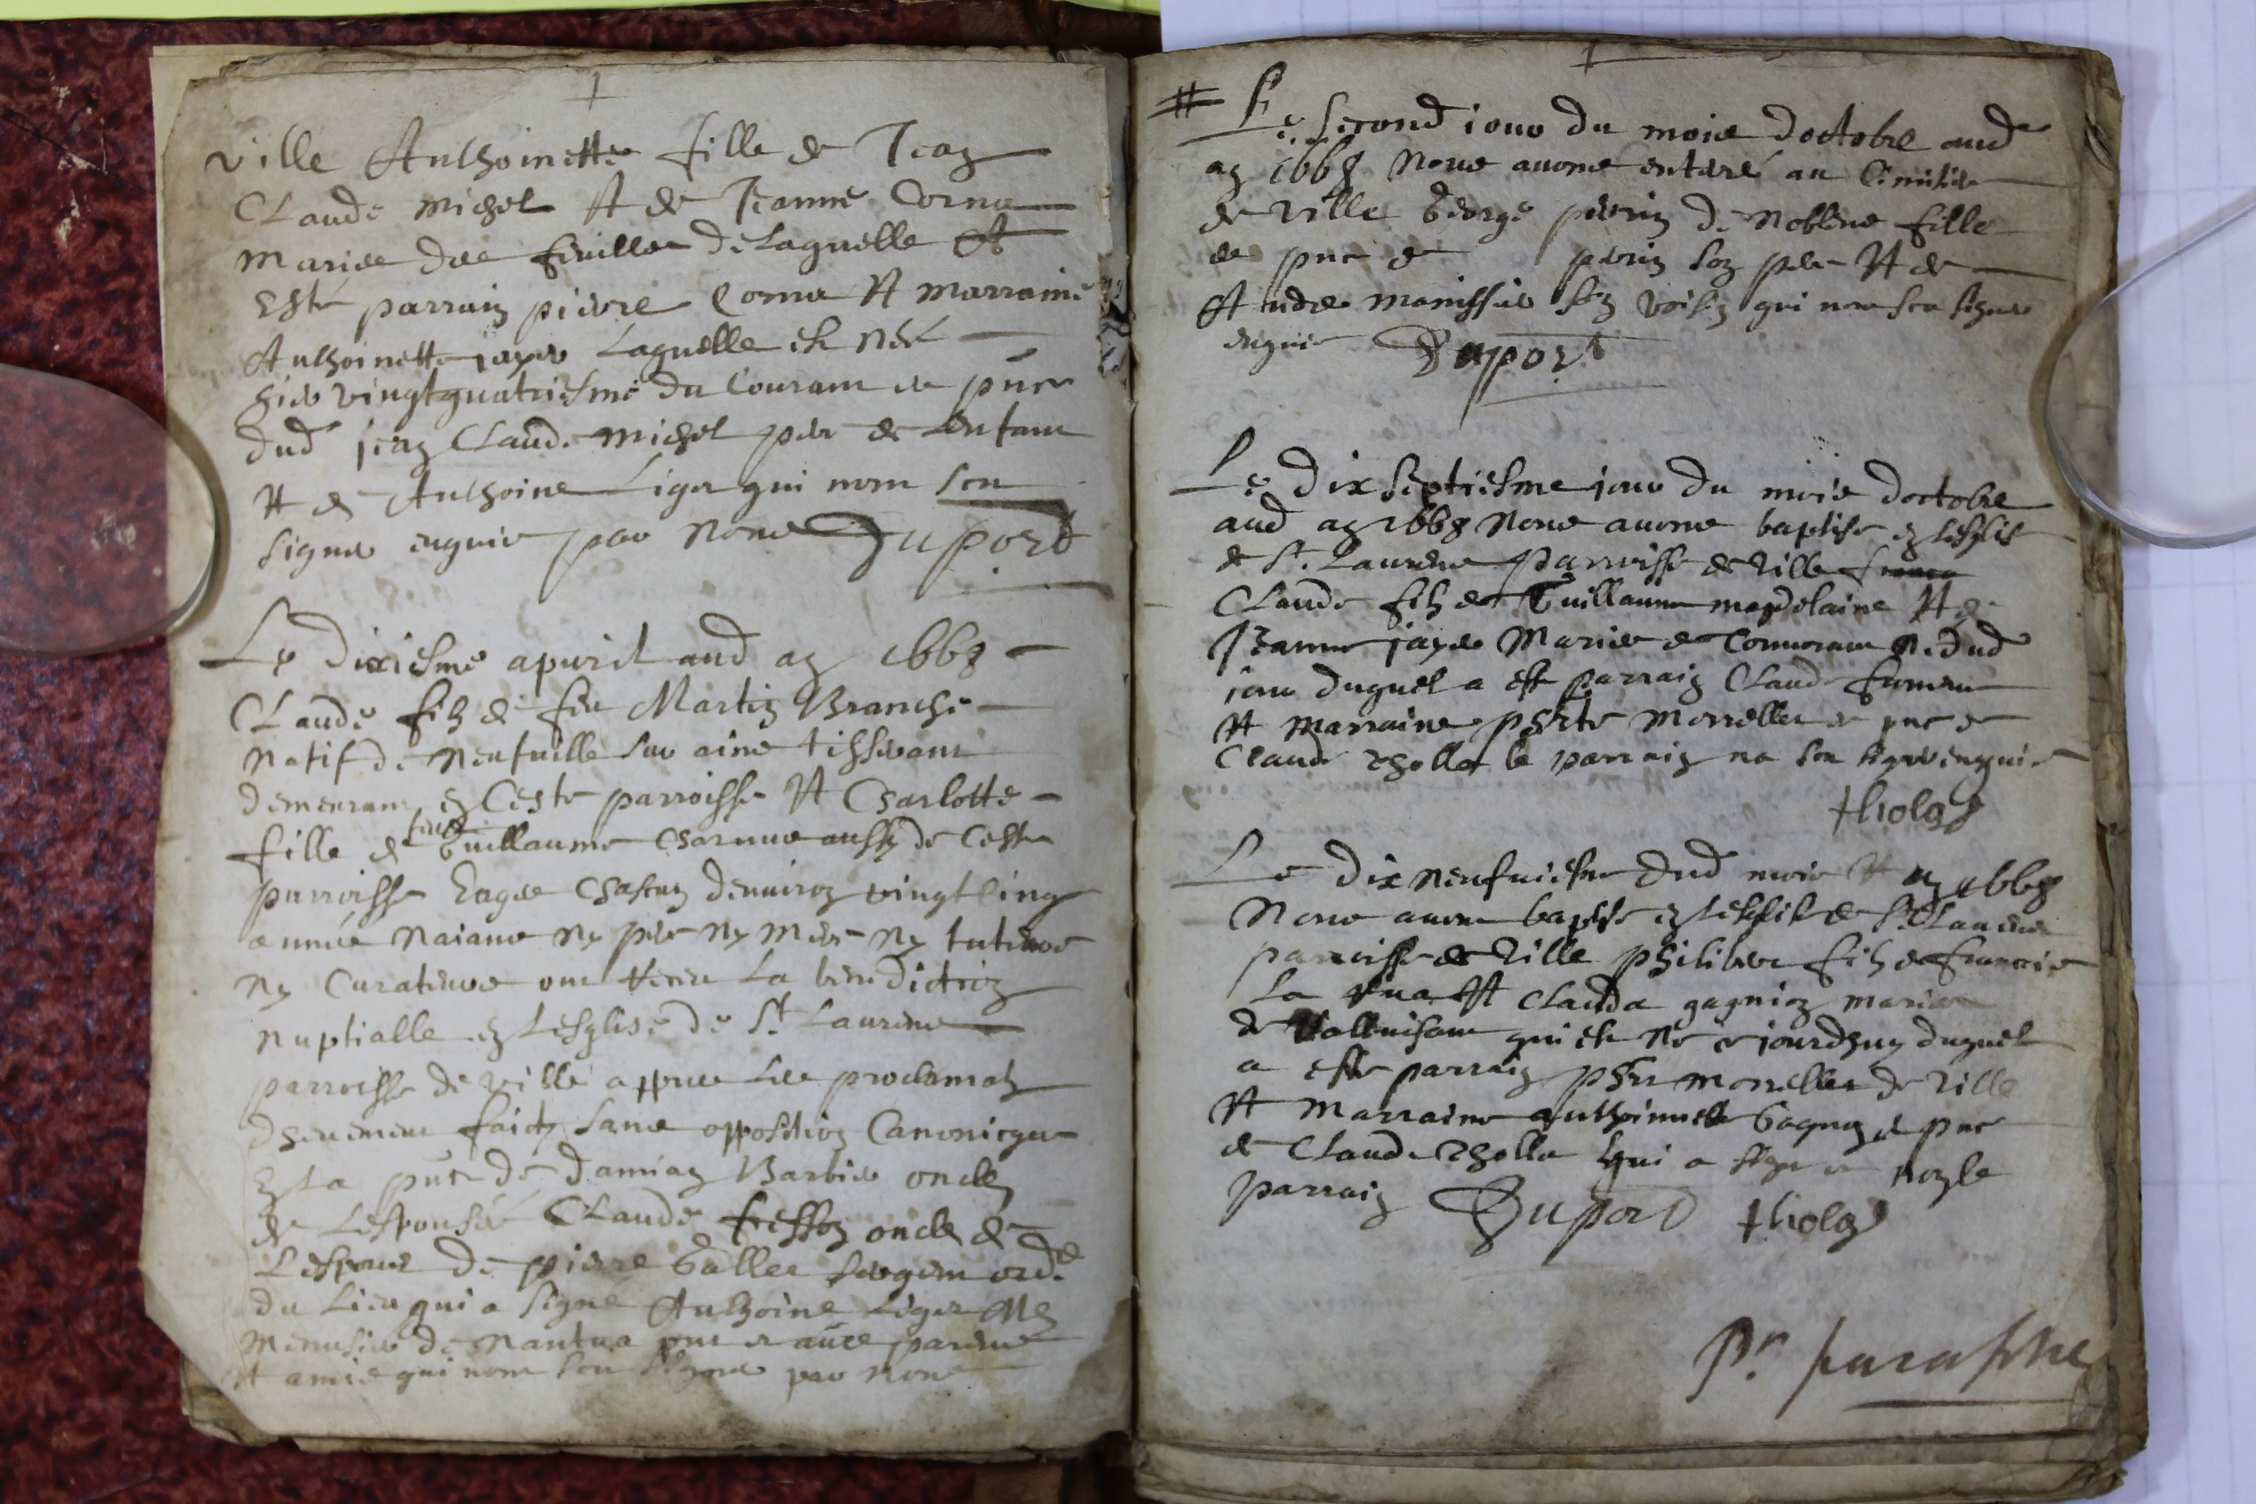 ville Anthoinette fille de Jean
Claude Michel et de Jeanne Cornu
mariés des feuilles de laquelle a
esté parrain pierre Cornu et marraine
Anthoinette jayer laquelle est née
hier vingtquatriesme du Courant en pnce
dud jean Claude Michel pere de Lenfant
et de Anthoine Liger qui nont sceu
signer enquis par Nous Duport
Le dixiesme apvril aud an 1668
Claude filz de feu Martin Branche
natif de Neufville sur ains tisserant
demeurant en Ceste parroisse et Charlotte
fille de feu Guillaume Charnue aussy de Ceste
parroisse Eagés Chascun denviron vingt Cinq
années Naiants ny pere ny mere ny tuteurs
ny Curateurs ont receu la benediction
nuptialle en Lesglise de St Laurens
parroisse de ville appres les proclamaons
dheuement faictz sans opposition Canonicque
En la pnce de damian Barbier oncle
de Lespousée Claude fresson oncle de
Lespoux de pierre Gallet sergent ordre
du Lieu qui a signé Anthoine Liger Me
Menusier de Nantua pnt et aultres parents
et amis qui nont sceu signer par Nous
Le second jour du mois doctobre aud
an 1668 Nous avons enterré au Cimitiere
de ville George perrin de Noblens fille
en pnce de perrin son pere et de
Andre manissier son voisin qui nont sceu signer
enquis Duport
Le dixseptiesme jour du mois doctobre
aud an 1668 Nous avons baptisé en Lesglise
de St. Laurens parroisse de ville
Claude filz de Guillaume magdelaine et de
Jeanne jayer Mariés de Cormoran Né dud
jour duquel a esté parrain Claude
et Marraine phrte Morrellet en pnce de
Claude Tholla le parrain na sceu signer enquis
tholas
Le dix neufviesme dud mois et an 1668
Nous avons baptisé en Lesglise de St Laurens
parroisse de ville philibert filz de francois
La et Claudia gagnion mariés
de qui est Né ce jourdhuy duquel
a esté parrain phrt morrellet de ville
et Marraine anthoinette Gagnon en pnce
de Claude Tholla qui a signé et non le
parrain Duport tholas
Pr. paraphe